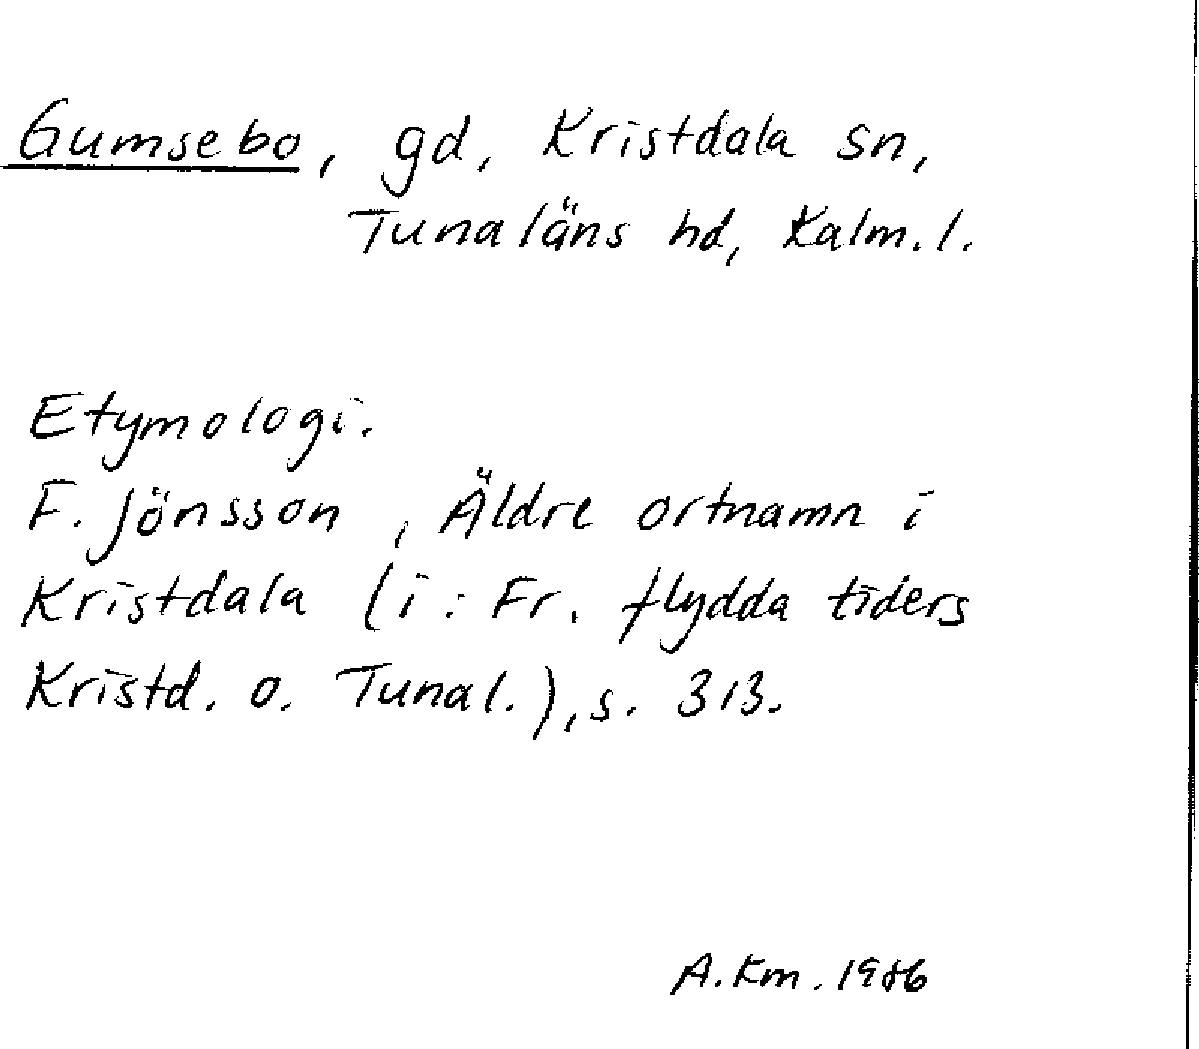 Gumsebo, gd, Kristdala sn,
Tunaläns hd, Kalm. l.
Etymologi.
F. Jönsson, Äldre ortnamn i
Kristdala (i: Fr. flydda tiders
Kristd. o. Tunal.), s. 313.
A. Km. 1986